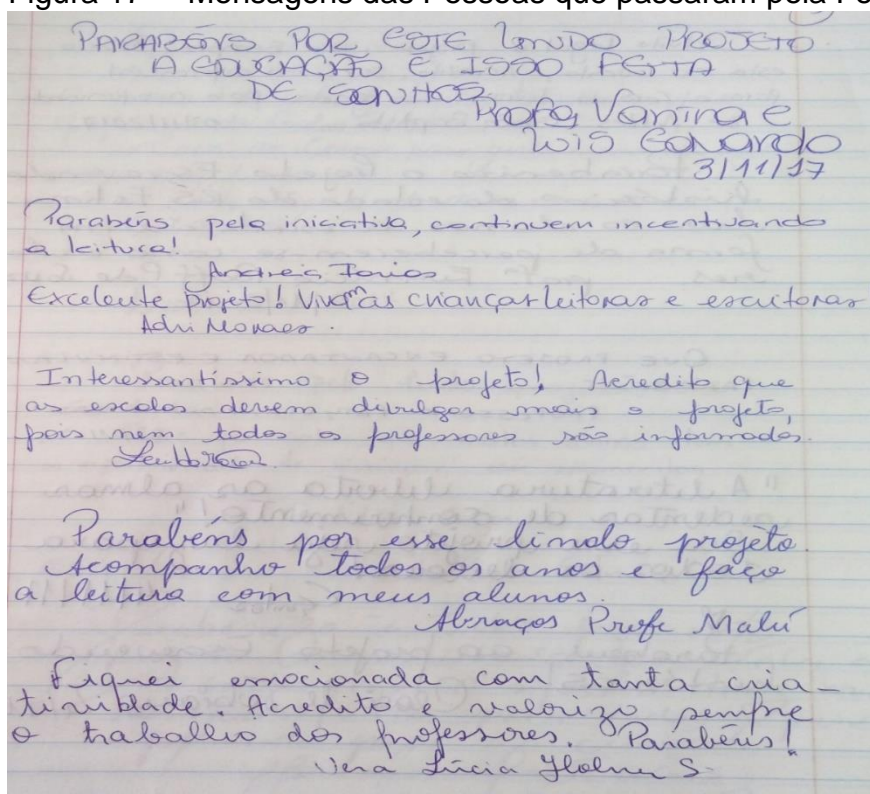 PARABÉNS POR ESTE LINDO PROJETO
A EDUCAÇÃO É ISSO FEITA
DE SONHOS
Profa Vanina e
Luis Eduardo
3/11/17
Parabéns pela iniciativa, continuem incentivando
a leitura!
Andreia
Excelente projeto! Vivam as crianças leitoras e escritoras
Adri Moraes.
Interessantíssimo o projeto! Acredito que
as escolas devem divulgar mais o projeto,
pois nem todos os professores são informados.
Parabéns por esse lindo projeto.
Acompanho todos os anos e faço
a leitura com meus alunos.
Abraços Profe Malú
Fiquei emocionada com tanta cria-
tividade. Acredito e valorizo sempre
o trabalho dos professores. Parabéns!
Vera Lúcia S.